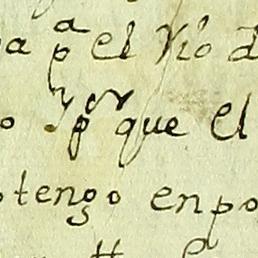 a pa el rio d
o y pr que el
tengo enpo